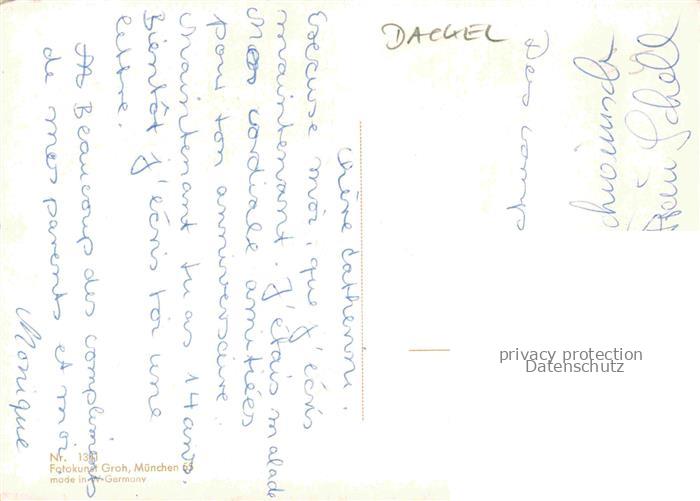 Chère Catherine.
Excuse moi, que j'écris
maintenant. J'étais malade
Mes cordiale amitiées
pour ton anniversaire.
Maintenant tu as 14 ans.
Bientôt j'écris toi une
lettre.
Beaucoup des compliments
de mes parents et moi
Monique
DACKEL
privacy protection
Datenschutz
Nr. 1361
Fotokunst Groh, München 55
made in Germany